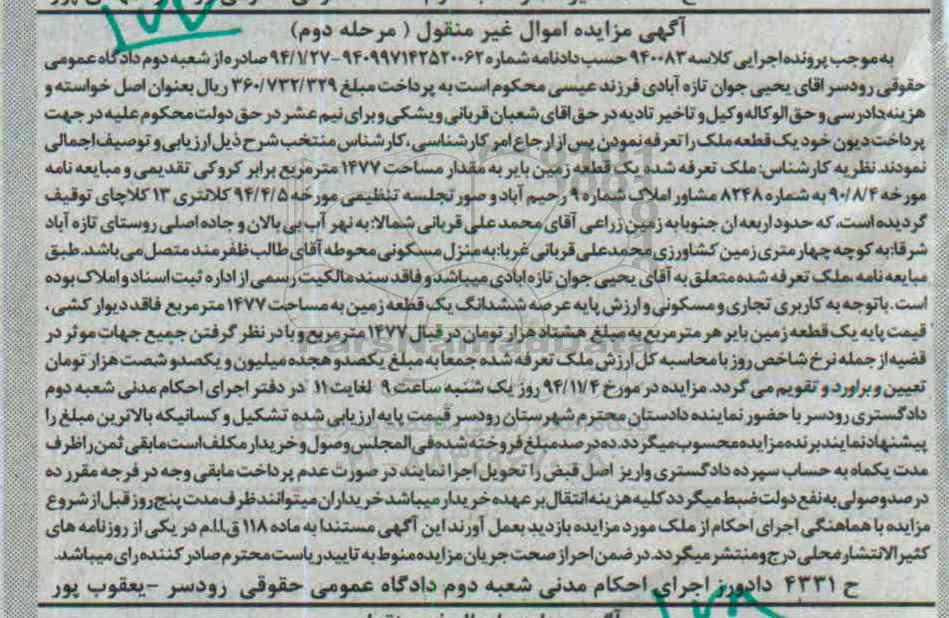 آگهی مزایده اموال غیر منقول ( مرحله دوم)
به موجب پرونده اجرایی کلاسه ۹۴۰۰۸۳ حسب دادنامه شماره ۹۴۰۹۹۷۱۴۲۵۲۰۰۶۲ -۹۴/۱/۲۷ صادره از شعبه دوم دادگاه عمومی
حقوقی رودسر اقای یحیی جوان تازه آبادی فرزند عیسی محکوم است به پرداخت مبلغ ۳۶۰/۷۳۲/۳۲۹ ریال بعنوان اصل خواسته و
هزینه دادرسی و حق الوکاله وکیل و تاخیر تادیه در حق اقای شعبان قربانی ویشکی و برای نیم عشر در حق دولت محکوم علیه در جهت
پرداخت دیون خود یک قطعه ملک را تعرفه نمودن پس از ارجاع امر کارشناسی ، کارشناس منتخب شرح ذیل ارزیابی و توصیف اجمالی
نمودند. نظریه کارشناس: ملک تعرفه شده یک قطعه زمین بایر به مقدار مساحت ۱۴۷۷ مترمربع برابر کروکی تقدیمی و مبایعه نامه
مورخه ۹۰/۸/۴ به شماره ۸۲۴۸ مشاور املاک شماره ۹ رحیم آباد و صور تجلسه تنظیمی مورخه ۹۴/۴/۵ کلانتری ۱۳ کلاچای توقیف
گردیده است. که حدود اربعه ان جنوبا به زمین زراعی آقای محمد علی قربانی شمالا: به نهر آب بی بالان و جاده اصلی روستای تازه آباد
شرقا: به کوچه چهار متری زمین کشاورزی محمدعلی قربانی غربا: به منزل مسکونی محوطه آقای طالب ظفرمند متصل می باشد. طبق
مبایعه نامه، ملک تعرفه شده متعلق به آقای یحیی جوان تازه ابادی میباشد و فاقد سند مالکیت رسمی از اداره ثبت اسناد و املاک بوده
است. باتوجه به کاربری تجاری و مسکونی و ارزش پایه عرصه ششدانگ یک قطعه زمین به مساحت ۱۴۷۷ متر مربع فاقد دیوار کشی ،
قیمت پایه یک قطعه زمین بایر هر متر مربع به مبلغ هشتاد هزار تومان در قبال ۱۴۷۷ متر مربع و با در نظر گرفتن جمیع جهات موثر در
قضیه از جمله نرخ شاخص روز با محاسبه کل ارزش ملک تعرفه شده جمعا به مبلغ یکصد و هجده میلیون و یکصد و شصت هزار تومان
تعیین و براورد و تقویم می گردد. مزایده در مورخ ۹۴/۱۱/۴ روز یک شنبه ساعت ۹ لغایت ۱۱ در دفتر اجرای احکام مدنی شعبه دوم
دادگستری رودسر با حضور نماینده دادستان محترم شهرستان رودسر قیمت پایه ارزیابی شده تشکیل و کسانیکه بالاترین مبلغ را
پیشنهاد نمایند برنده مزایده محسوب میگردد. ده درصد مبلغ فروخته شده فی المجلس وصول و خریدار مکلف است مابقی ثمن را ظرف
مدت یکماه به حساب سپرده دادگستری واریز اصل قبض را تحویل اجرا نمایند در صورت عدم پرداخت مابقی وجه در فرجه مقرر ده
درصد وصولی به نفع دولت ضبط میگردد کلیه هزینه انتقال بر عهده خریدار میباشد خریداران میتوانند ظرف مدت پنج روز قبل از شروع
مزایده با هماهنگی اجرای احکام از ملک مورد مزایده بازدید بعمل آورند این آگهی مستندا به ماده ۱۱۸ ق.ا.ا.م در یکی از روزنامه های
کثیرالانتشار محلی درج و منتشر میگردد. در ضمن احراز صحت جریان مزایده منوط به تایید ریاست محترم صادر کننده رای میباشد.
ح ۴۳۳۱ دادورز اجرای احکام مدنی شعبه دوم دادگاه عمومی حقوقی رودسر -یعقوب پور